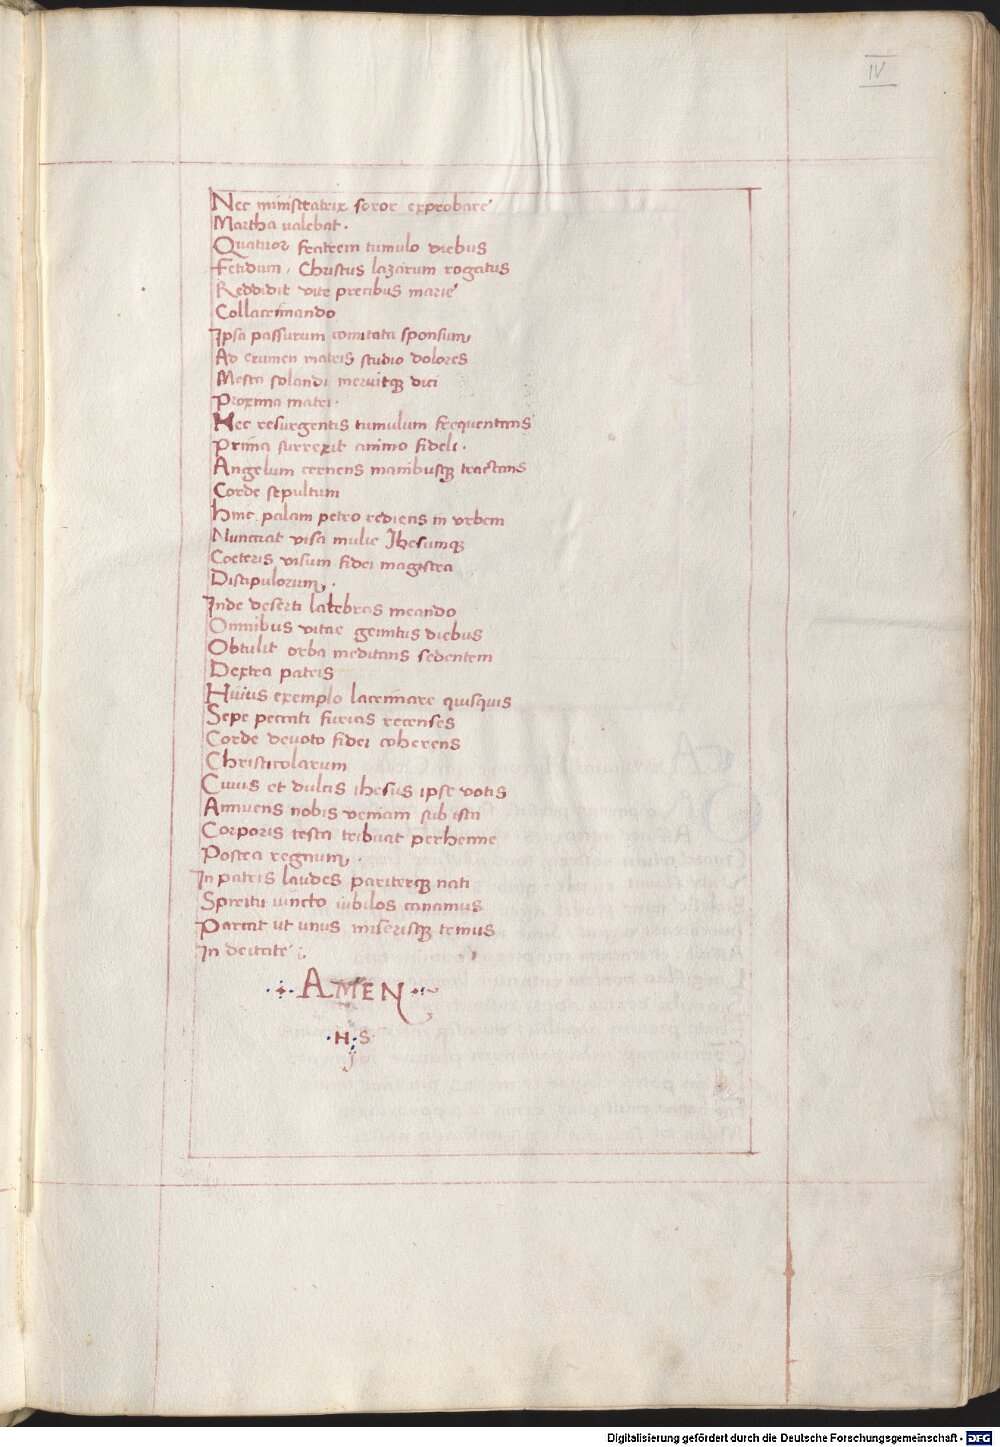 IV
Nec ministratrix soror exprobare
Martha ualebat.
Quatuor fratrem tumulo diebus
Fetidum. Christus lazarum rogatus
Reddidit vite precibus marie
Collacrimando
Ipsa passurum comitata sponsum
Ad crumen matris studio dolores
Mesta solandi meruitque dici
Proxima matri.
Nec resurgentis tumulum frequentans
Prima surrexit animo fideli.
Angelum cernens manibusque tractans
Corde sepultum
Hinc palam petro rediens in vrbem
Nunctiat visa mulie Jhesumque
Coeteris visum fidei magistra
Discipulorum.
Inde deserti latebras meando
Omnibus vitae gemitus diebus
Obtulit orba meditans sedentem
Dextra patris
Huius exemplo lacrimare quisquis
Sepe peccati furias recenses
Corde deuoto fidei coherens
Christicolarum
Cuius et dulcis ihesus ipse votis
Annuens nobis veniam sub ista
Corporis testa tribuat perhenne
Postea regnum.
In patris laudes pariterque nati
Spreitu uincto iubilos canamus
Parcat ut unus miserisque trinus
In deitate
AMEN
.H.S.
Digitalisierung gefördert durch die Deutsche Forschungsgemeinschaft - DFG